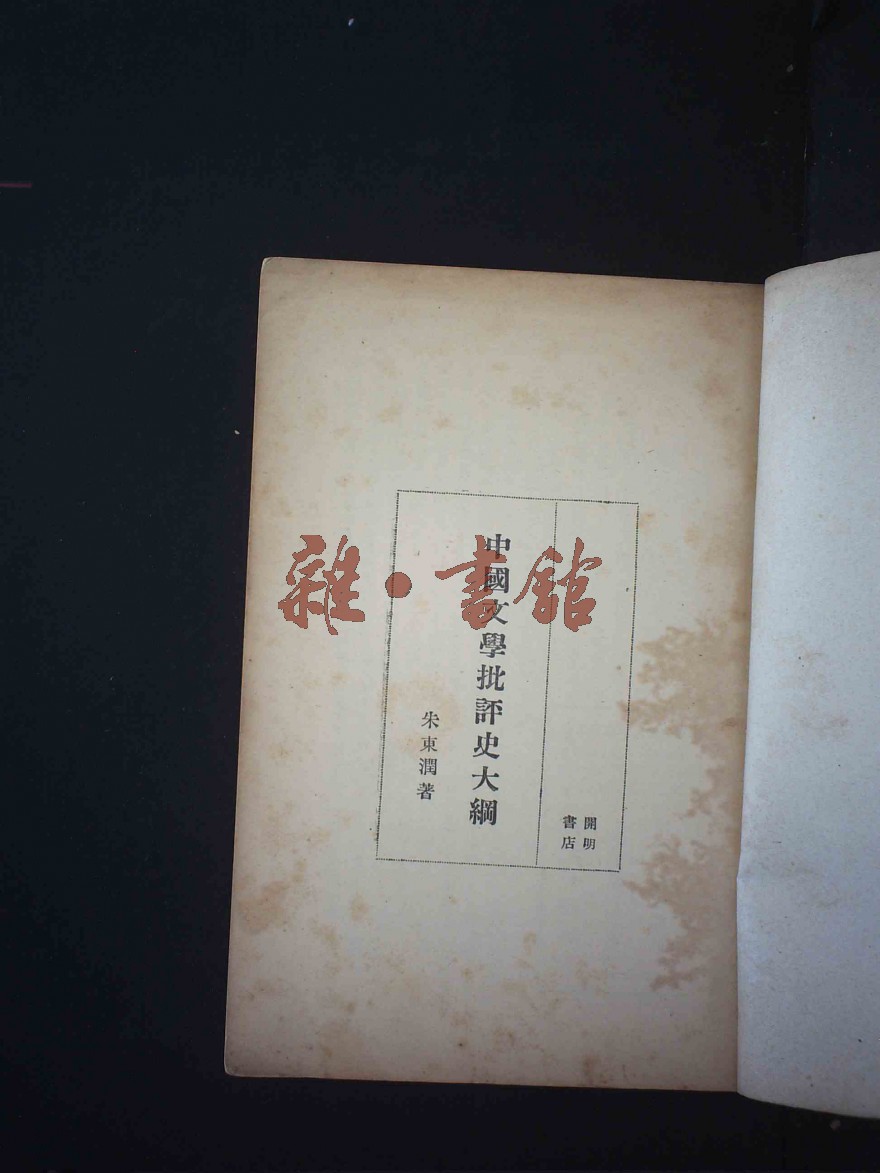 開明
書店
中國文學批評史大綱
朱東潤著
雜·書館